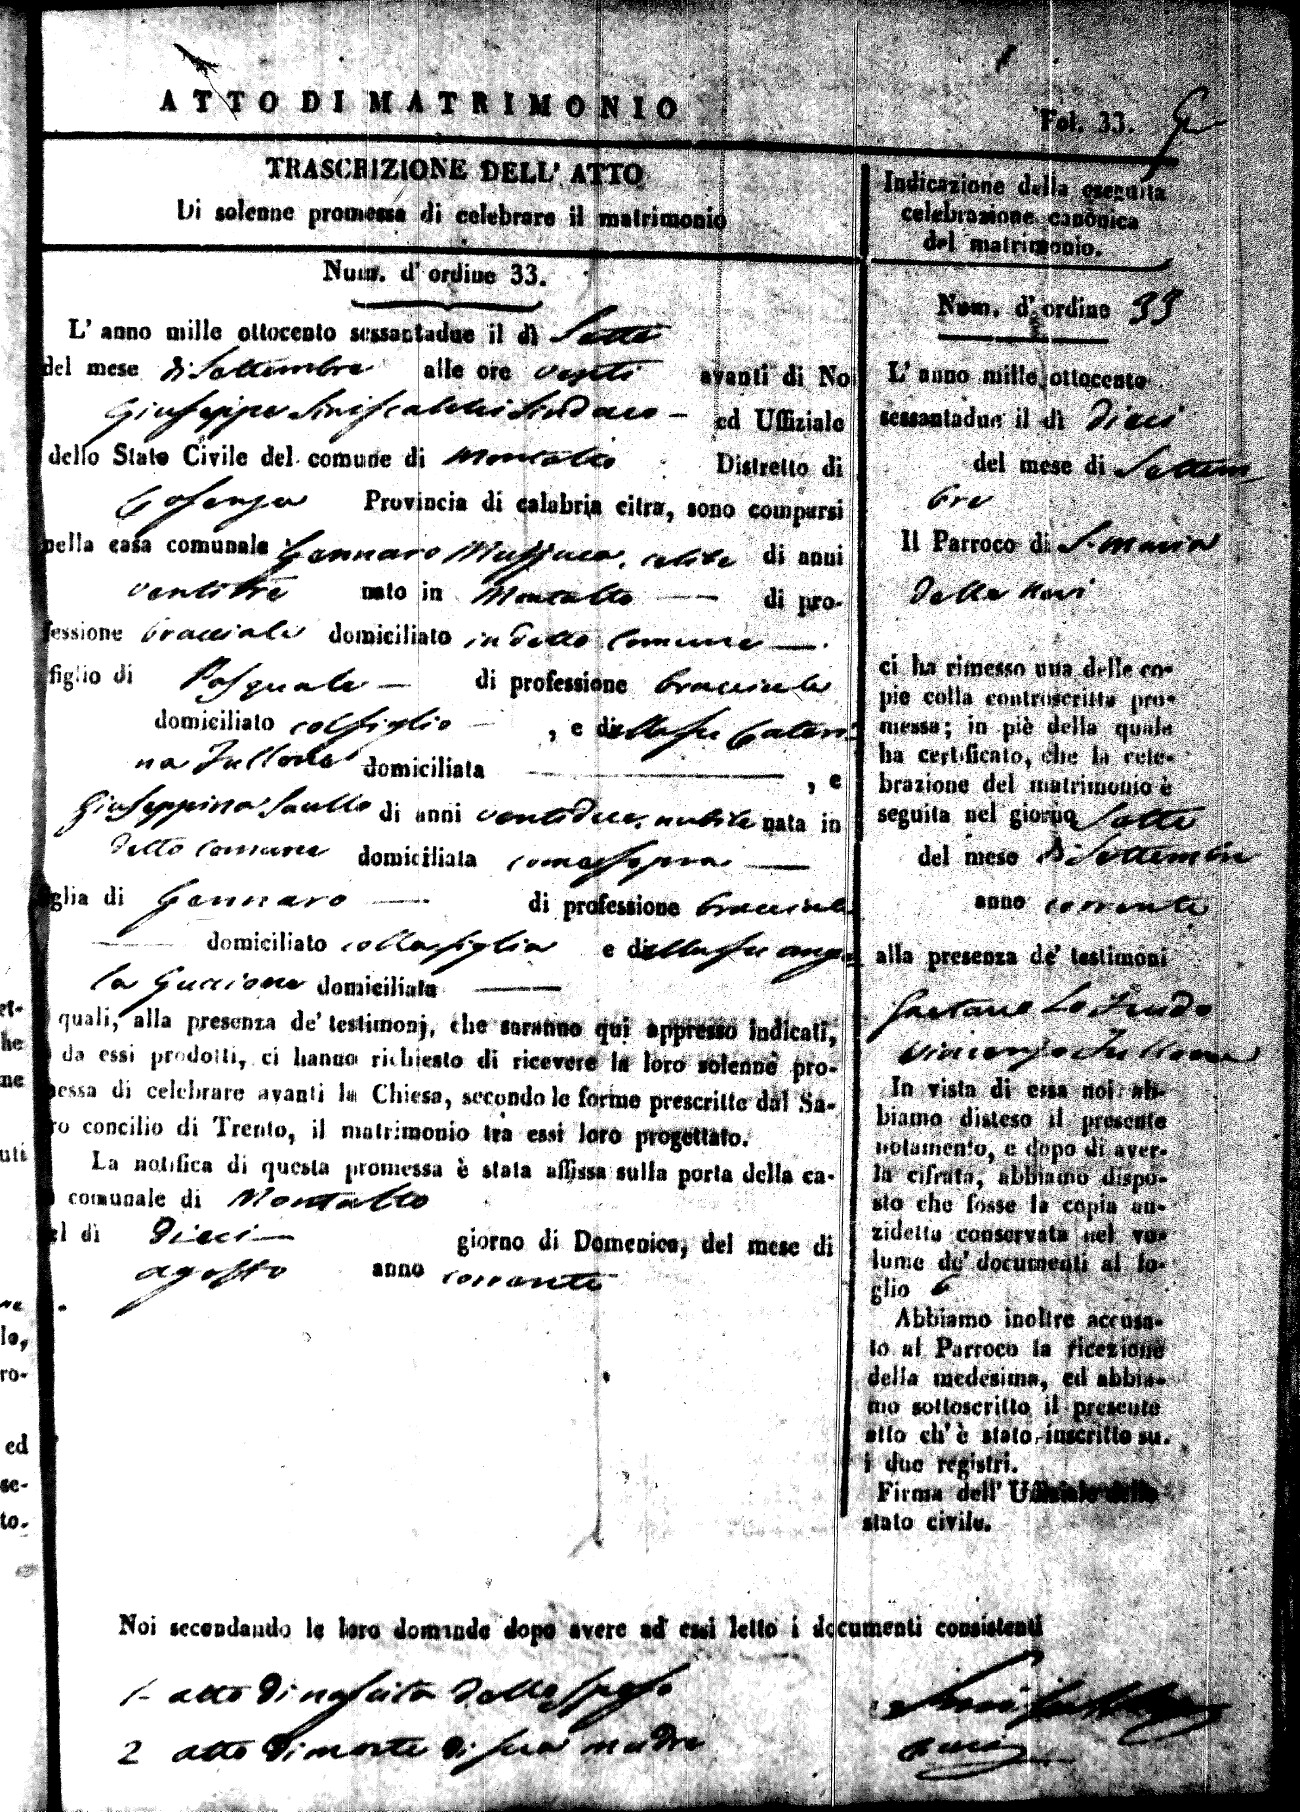 ATTO DI MATRIMONIO
Fol. 33.
TRASCRIZIONE DELL' ATTO
Di solenne promessa di celebrare il matrimonio
Num. d' ordine 33.
L' anno mille ottocento sessantadue il dì Sette
del mese di Settembre alle ore venti avanti di No
Giuseppe Siniscalchi Sindaco - ed Uffiziale
dello Stato Civile del comune di Montalto Distretto di
Cosenza Provincia di calabria citra, sono comparsi
nella casa comunale Gennaro celibe di anni
ventitre nato in Montalto di pro-
fessione bracciale domiciliato in detto Comune
figlio di Pasquale di professione bracciale
domiciliato col figlio , e della fu Cateri-
na Fullone domiciliata , e
Giuseppina Saullo di anni ventidue, nubile nata in
detto comune domiciliata come sopra
glia di Gennaro di professione bracciale
domiciliato colla figlia e della fu Ange
la Guccione domiciliata
quali, alla presenza de' testimonj, che saranno qui appresso indicati,
da essi prodotti, ci hanno richiesto di ricevere la loro solenne pro-
messa di celebrare avanti la Chiesa, secondo le forme prescritte dal Sa-
ro concilio di Trento, il matrimonio tra essi loro progettato.
La notifica di questa promessa è stata affissa sulla porta della ca-
comunale di Montalto
el dì Dieci giorno di Domenica, del mese di
agosto anno corrente
Indicazione della eseguita
celebrazione canonica
del matrimonio.
Num. d' ordine 33
L' anno mille ottocento
sessantadue il dì dieci
del mese di Settem
bre
Il Parroco di S. Maria
della
ci ha rimesso una delle co-
pie colla controscritta pro-
messa; in piè della quale
ha certificato, che la cele-
brazione del matrimonio è
seguita nel giorno Sette
del mese di Settembre
anno corrente
alla presenza de' testimoni
Gaetano Lo Feudo
Vincenzo Fullone
In vista di essa noi ab-
biamo disteso il presente
notamento, e dopo di aver-
la cifrata, abbiamo dispo-
sto che fosse la copia an-
zidetta conservata nel vo-
lume de' documenti al fo-
glio 6
Abbiamo inoltre accusa-
to al Parroco la ricezione
della medesima, ed abbia-
mo sottoscritto il presente
atto ch' è stato inscritto su
i due registri.
Firma dell' Uffiziale dello
stato civile.
Noi secondando le loro domande dopo avere ad essi letto i documenti consistenti
1- atto di nascita dello sposo
2 atto di morte di sua madre